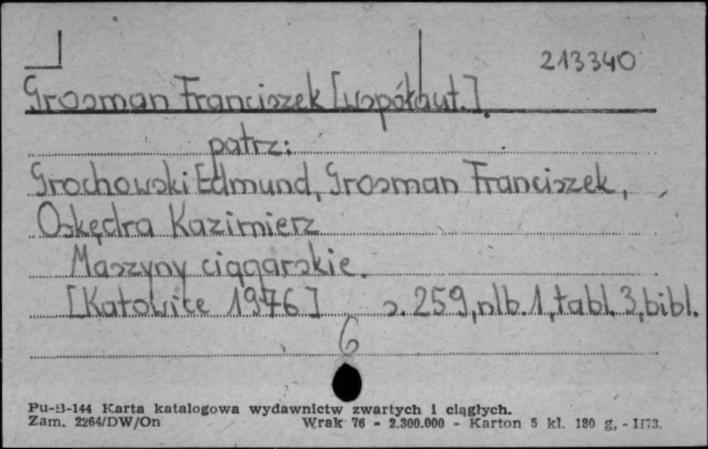 213340
Grosman Franciszek [współaut.].
patrz:
Grochowski Edmund, Grosman Franciszek,
Oskędra Kazimierz
Maszyny ciągarskie.
[Katowice 1976] s. 259, nlb. 1, tabl. 3, bibl.
6
Pu-B-144 Karta katalogowa wydawnictw zwartych i ciągłych.
Zam. 2264/DW/On Wrak 76 - 2.300.000 - Karton 5 kl. 180 g, - II73.